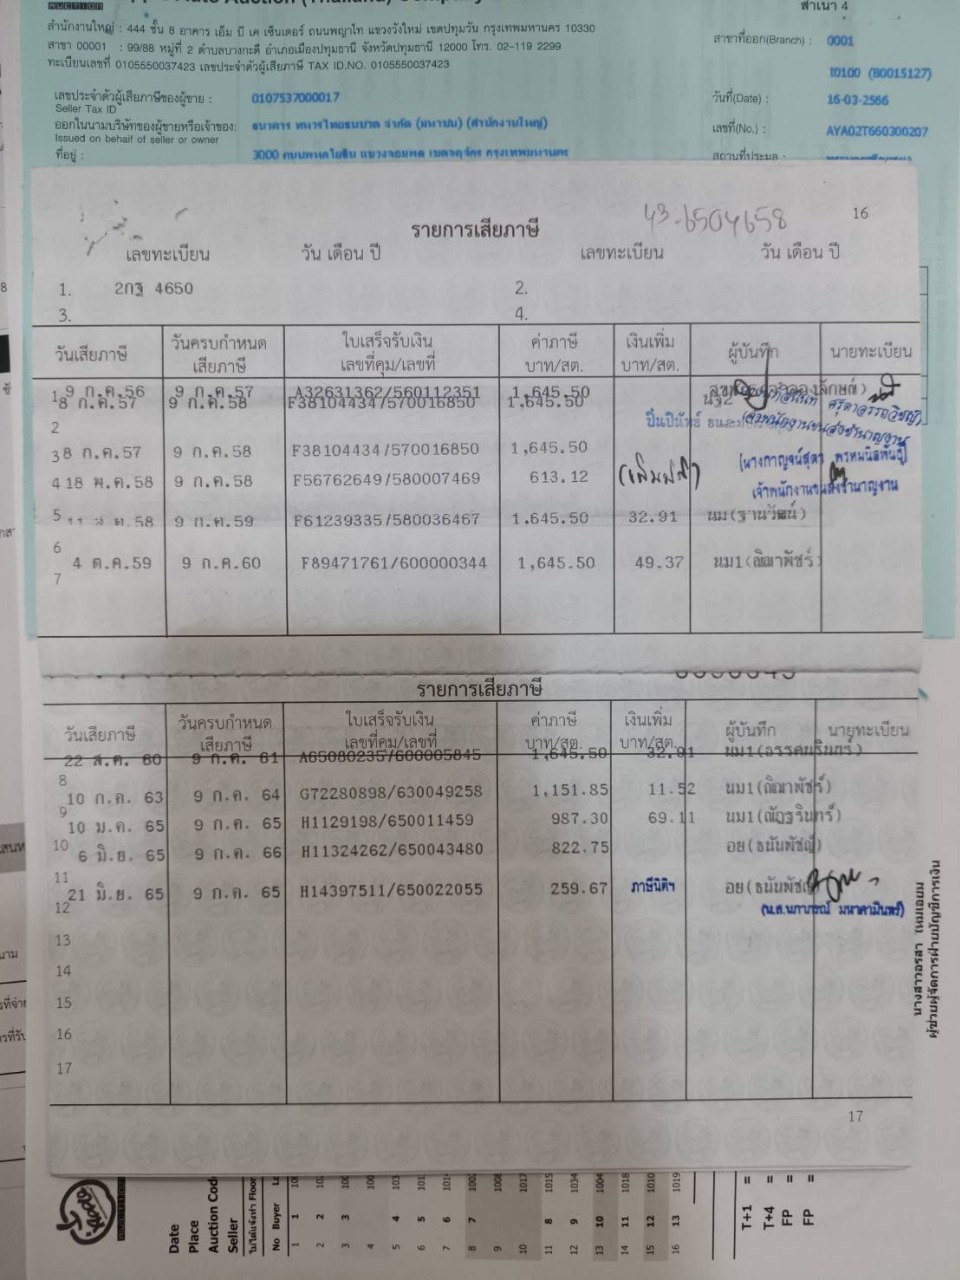 Auto Auction (Thailand)
สำเนา 4
สำนักงานใหญ่ : 444 ชั้น 8 อาคาร เอ็ม บี เค เซ็นเตอร์ ถนนพญาไท แขวงวังใหม่ เขตปทุมวัน กรุงเทพมหานคร 10330
สาขา 00001 : 99/88 หมู่ที่ 2 ตำบลบางกะดี อำเภอเมืองปทุมธานี จังหวัดปทุมธานี 12000 โทร. 02-119 2299
ทะเบียนเลขที่ 0105550037423 เลขประจำตัวผู้เสียภาษี TAX ID.NO. 0105550037423
สาขาที่ออก(Branch) : 0001
I0100 (B0015127)
เลขประจำตัวผู้เสียภาษีของผู้ขาย : 0107537000017
Seller Tax ID
วันที่(Date) : 16-03-2566
ออกในนามบริษัทของผู้ขายหรือเจ้าของ: ธนาคาร ทหารไทยธนชาต จำกัด (มหาชน) (สำนักงานใหญ่)
Issued on behalf of seller or owner
เลขที่(No.) : AYA02T660300207
ที่อยู่ : 3000 ถนนพหลโยธิน แขวงจอมพล เขตจตุจักร กรุงเทพมหานคร
สถานที่ประมูล :
43-6504658
16
รายการเสียภาษี
เลขทะเบียน วัน เดือน ปี เลขทะเบียน วัน เดือน ปี
1. 2กฐ 4650 2.
3. 4.
วันเสียภาษี วันครบกำหนดเสียภาษี ใบเสร็จรับเงิน เลขที่คุม/เลขที่ ค่าภาษี บาท/สต. เงินเพิ่ม บาท/สต. ผู้บันทึก นายทะเบียน
1 9 ก.ค.56 9 ก.ค.57 A32631362/560112351 1,645.50
8 ก.ค.57 9 ก.ค.58 F38104434/570016850 1,645.50
2
3 8 ก.ค.57 9 ก.ค.58 F38104434/570016850 1,645.50
4 18 พ.ค.58 9 ก.ค.58 F56762649/580007469 613.12
เจ้าพนักงานขนส่งชำนาญงาน
5 11 ส.ค.58 9 ก.ค.59 F61239335/580036467 1.645.50 32.91 นม(ฐานวัฒน์)
6
4 ต.ค.59 9 ก.ค.60 F89471761/600000344 1,645.50 49.37 นม1(ณิฌาพัชร์)
7
รายการเสียภาษี
วันเสียภาษี วันครบกำหนดเสียภาษี ใบเสร็จรับเงิน เลขที่คุม/เลขที่ ค่าภาษี บาท/สต. เงินเพิ่ม บาท/สต. ผู้บันทึก นายทะเบียน
22 ส.ค. 60 9 ก.ค. 61 A65080235/600005845 1,645.50 32.91
8
10 ก.ค. 63 9 ก.ค. 64 G72280898/630049258 1,151.85 11.52 นม1(ณิฌาพัชร์)
9
10 ม.ค. 65 9 ก.ค. 65 H1129198/650011459 987.30 69.11 นม1(ณัฏฐรินทร์)
10
6 มิ.ย. 65 9 ก.ค. 66 H11324262/650043480 822.75 อย(ธนันพัชญ์)
11
21 มิ.ย. 65 9 ก.ค. 65 H14397511/650022055 259.67 ภาษีนิติฯ อย(ธนันพัชญ์)
12
13
14
15
16
17
17
Date
Place
Auction Code
Seller
No Buyer
T+1 =
T+4 =
FP =
FP =